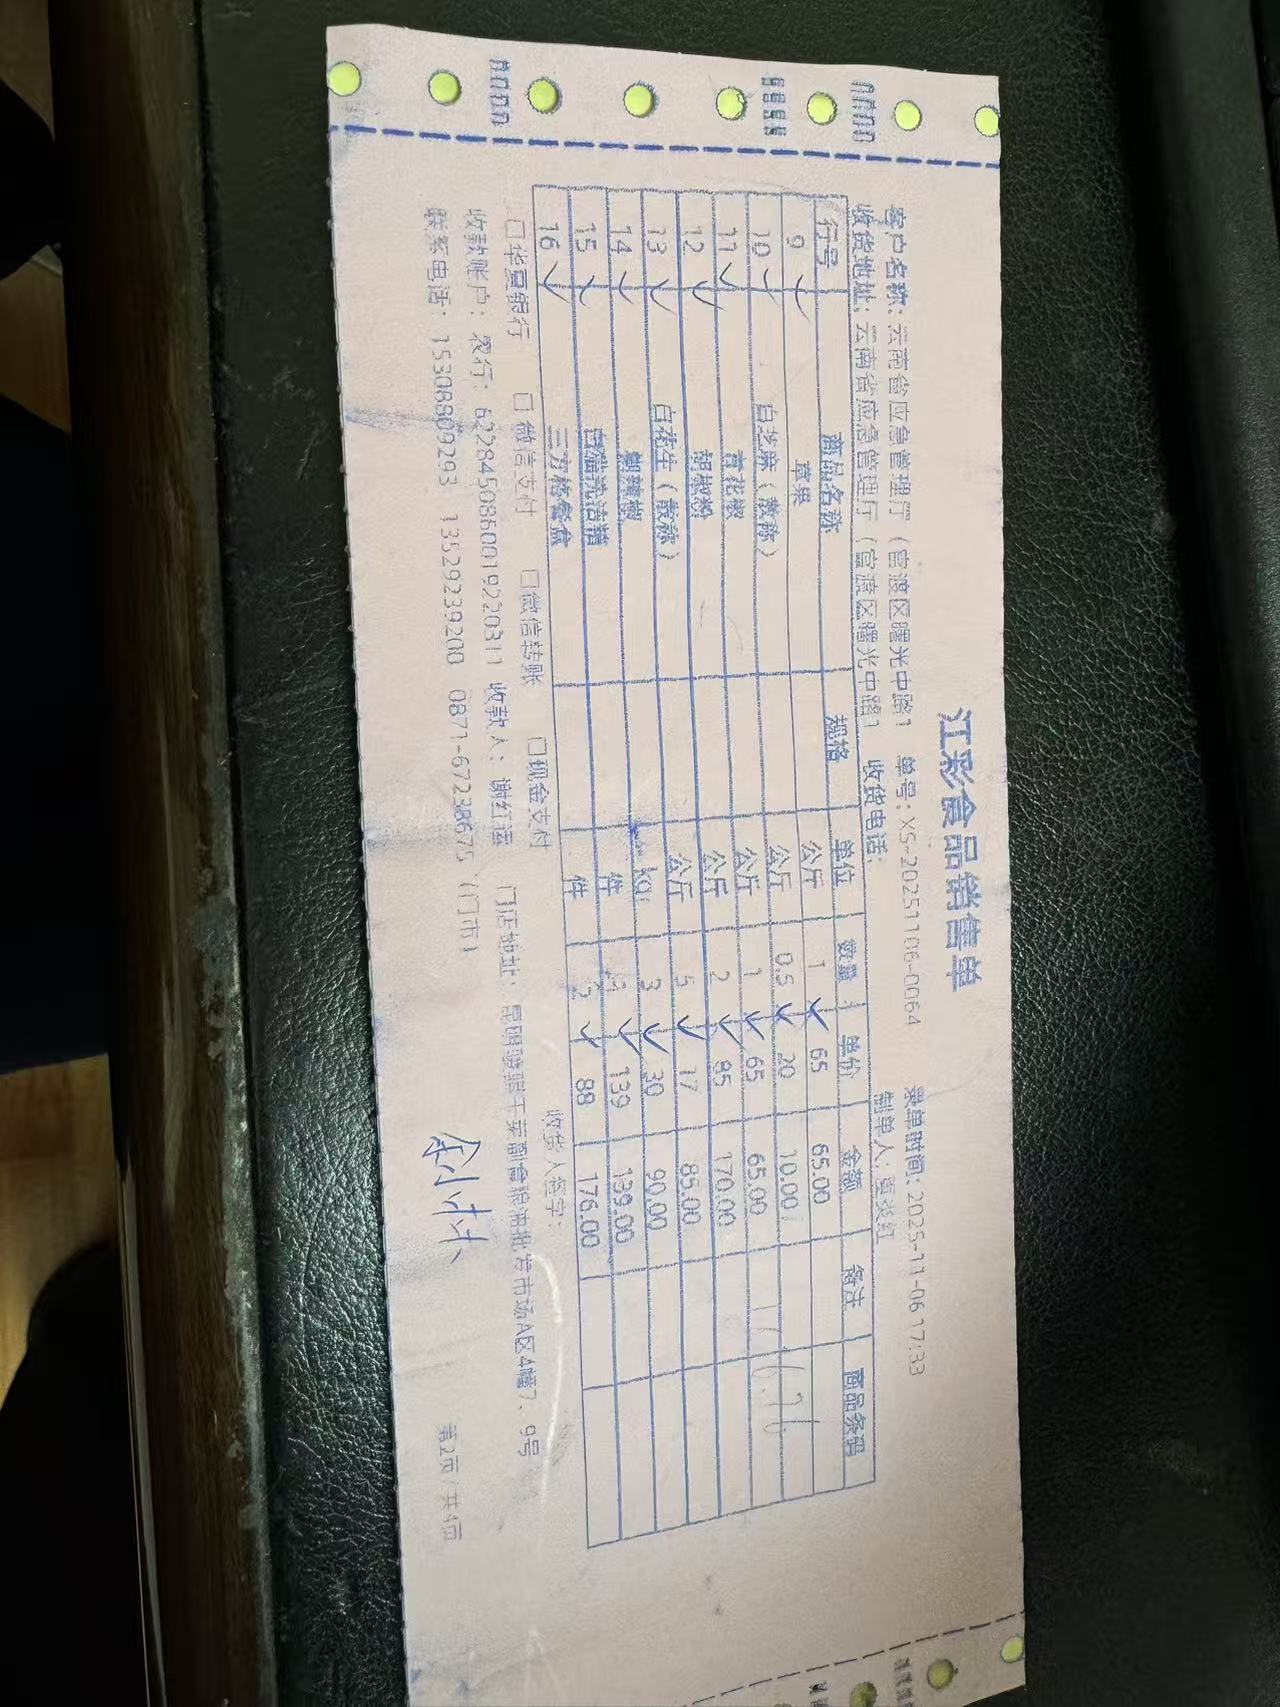 江彩食品销售单
客户名称: 云南省应急管理厅（官渡区曙光中路1 单号:XS-20251106-0064 录单时间: 2025-11-06 17:33
收货地址: 云南省应急管理厅（官渡区曙光中路1 收货电话: 制单人:
行号 商品名称 规格 单位 数量 单价 金额 备注 商品条码
9 草果 公斤 1 65 65.00
10 白芝麻（散称） 公斤 0.5 20 10.00
11 青花椒 公斤 1 65 65.00
12 胡椒粉 公斤 2 85 170.00
13 白花生（散称） 公斤 5 17 85.00
14 糊辣椒 kg 3 30 90.00
15 白猫洗洁精 件 1 139 139.00
16 二方格餐盒 件 2 88 176.00
□华夏银行 □微信支付 □微信转账 □现金支付 收货人签字:
收款账户: 农行: 6228450860019220311 收款人: 谢红运 门店地址: 昆明骏骐干菜副食粮油批发市场A区4幢7、9号
联系电话: 15308809293 13529239200 0871-67238675（门市）
第2页/共4页